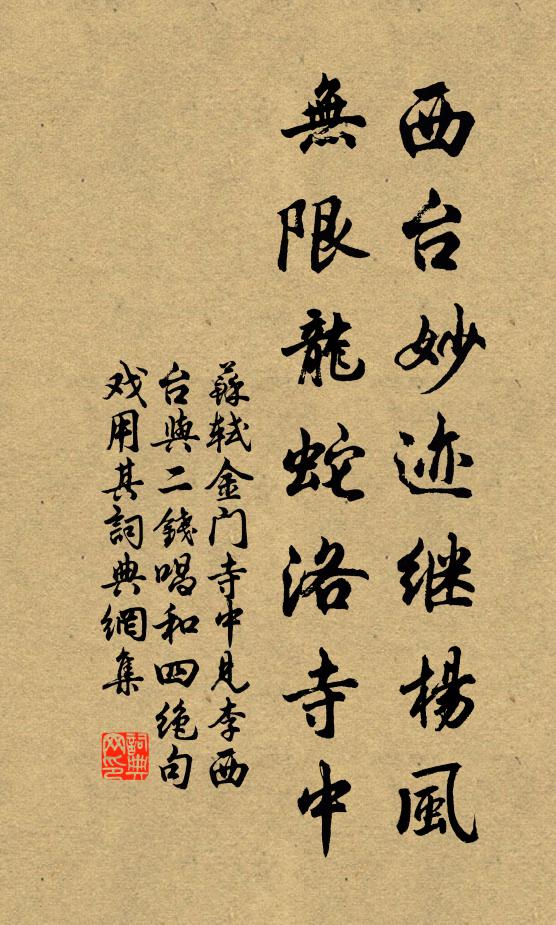 西台妙迹继楊風
無限龍蛇洛寺中
蘇軾金门寺中見李西
台與二錢唱和四绝句
戏用其詞典網集
詞典网印